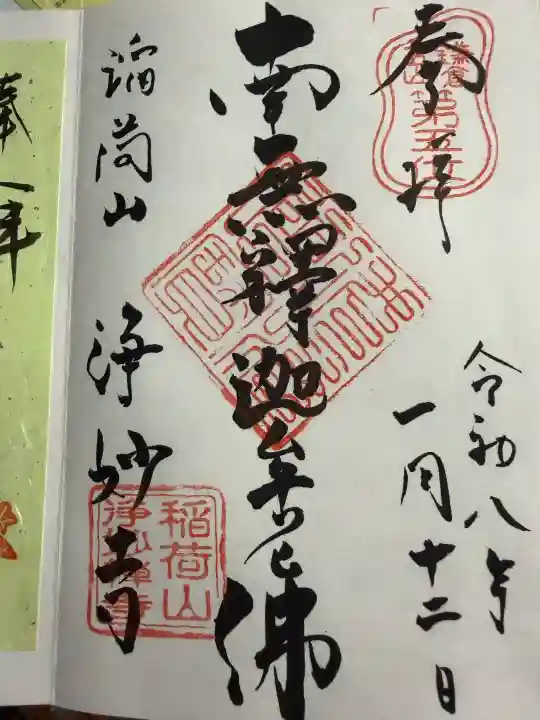 奉拝
鎌倉
第五位
令和八年
一月十二日
南無釋迦牟尼佛
稲荷山
浄妙寺
稲荷山
浄妙禅寺
奉拝